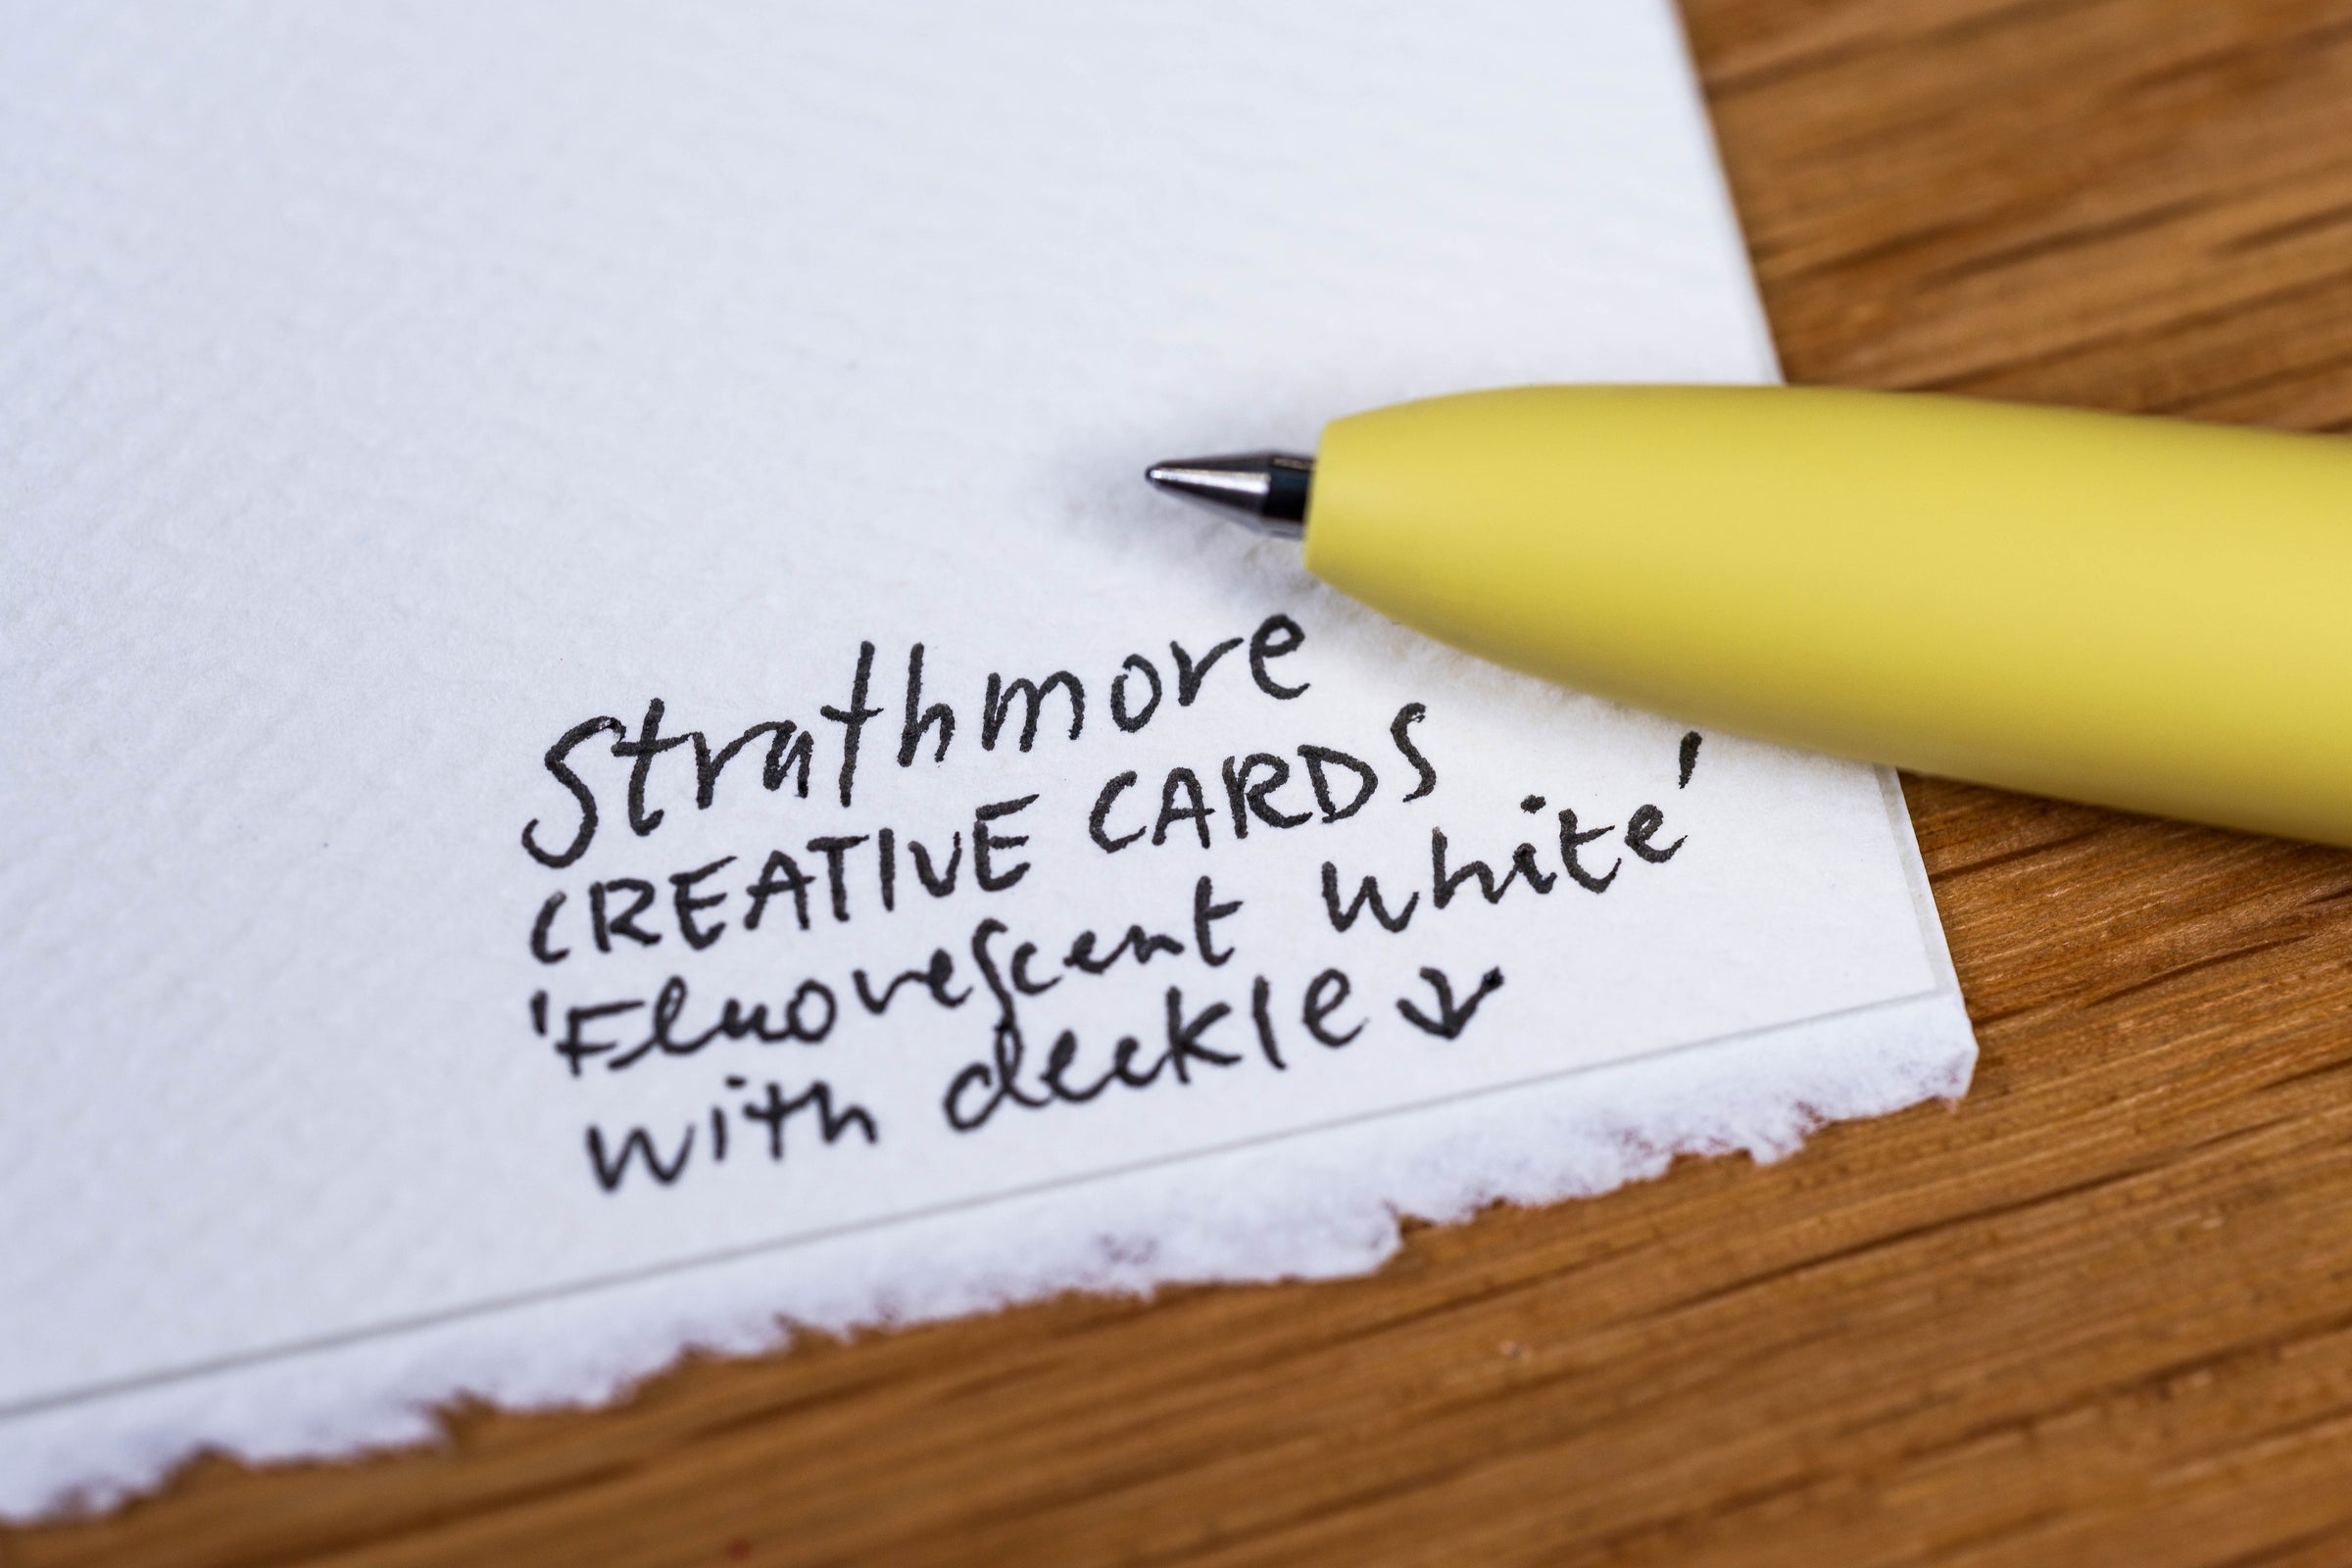 Strathmore
CREATIVE CARDS
'Fluorescent White'
with deckle ↓